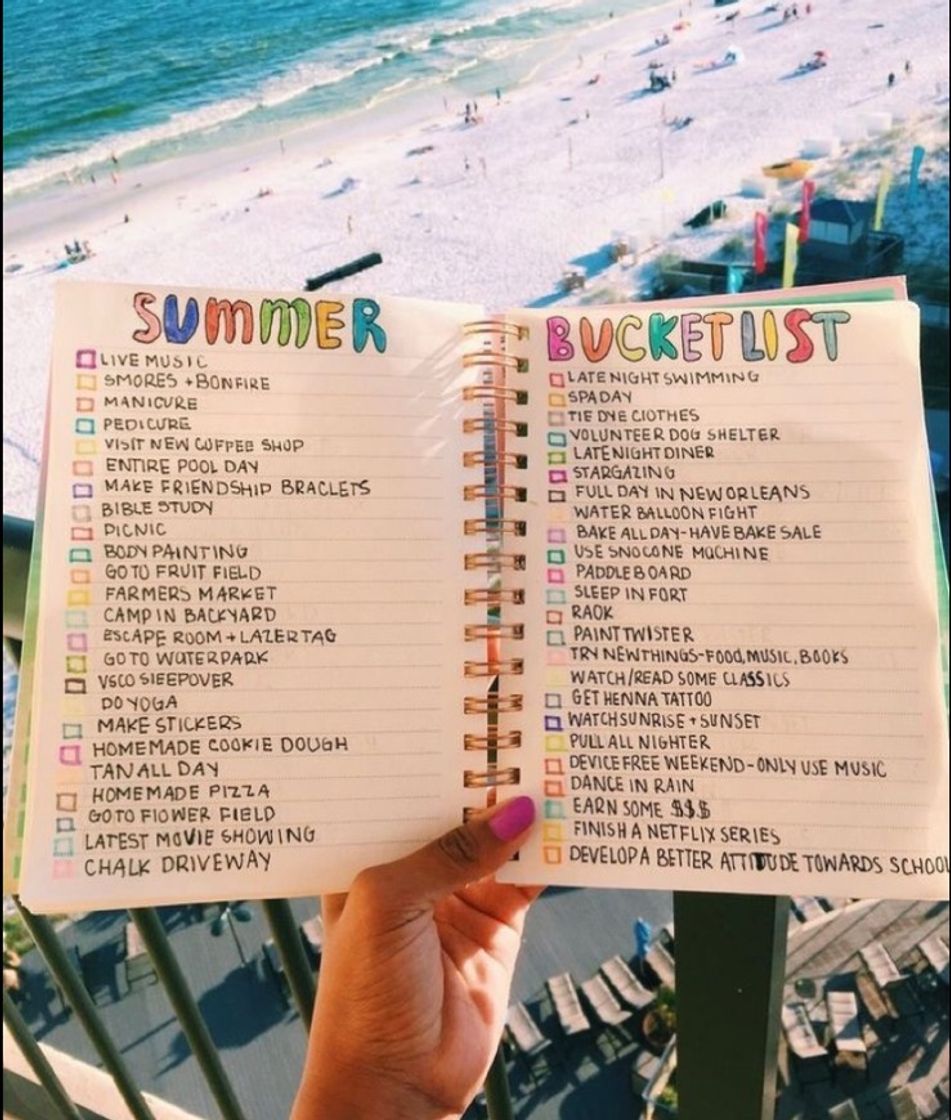 SUMMER
LIVE MUSIC
SMORES + BONFIRE
MANICURE
PEDICURE
VISIT NEW COFFEE SHOP
ENTIRE POOL DAY
MAKE FRIENDSHIP BRACLETS
BIBLE STUDY
PICNIC
BODY PAINTING
GO TO FRUIT FIELD
FARMERS MARKET
CAMP IN BACKYARD
ESCAPE ROOM + LAZER TAG
GO TO WATERPARK
VSCO SLEEPOVER
DO YOGA
MAKE STICKERS
HOMEMADE COOKIE DOUGH
TAN ALL DAY
HOMEMADE PIZZA
GO TO FLOWER FIELD
LATEST MOVIE SHOWING
CHALK DRIVEWAY
BUCKET LIST
LATE NIGHT SWIMMING
SPA DAY
TIE DYE CLOTHES
VOLUNTEER DOG SHELTER
LATE NIGHT DINER
STARGAZING
FULL DAY IN NEW ORLEANS
WATER BALLOON FIGHT
BAKE ALL DAY-HAVE BAKE SALE
USE SNOCONE MACHINE
PADDLEBOARD
SLEEP IN FORT
RAOK
PAINT TWISTER
TRY NEW THINGS-FOOD, MUSIC, BOOKS
WATCH/READ SOME CLASSICS
GET HENNA TATTOO
WATCH SUNRISE + SUNSET
PULL ALL NIGHTER
DEVICE FREE WEEKEND-ONLY USE MUSIC
DANCE IN RAIN
EARN SOME $$$
FINISH A NETFLIX SERIES
DEVELOP A BETTER ATTITUDE TOWARDS SCHOOL